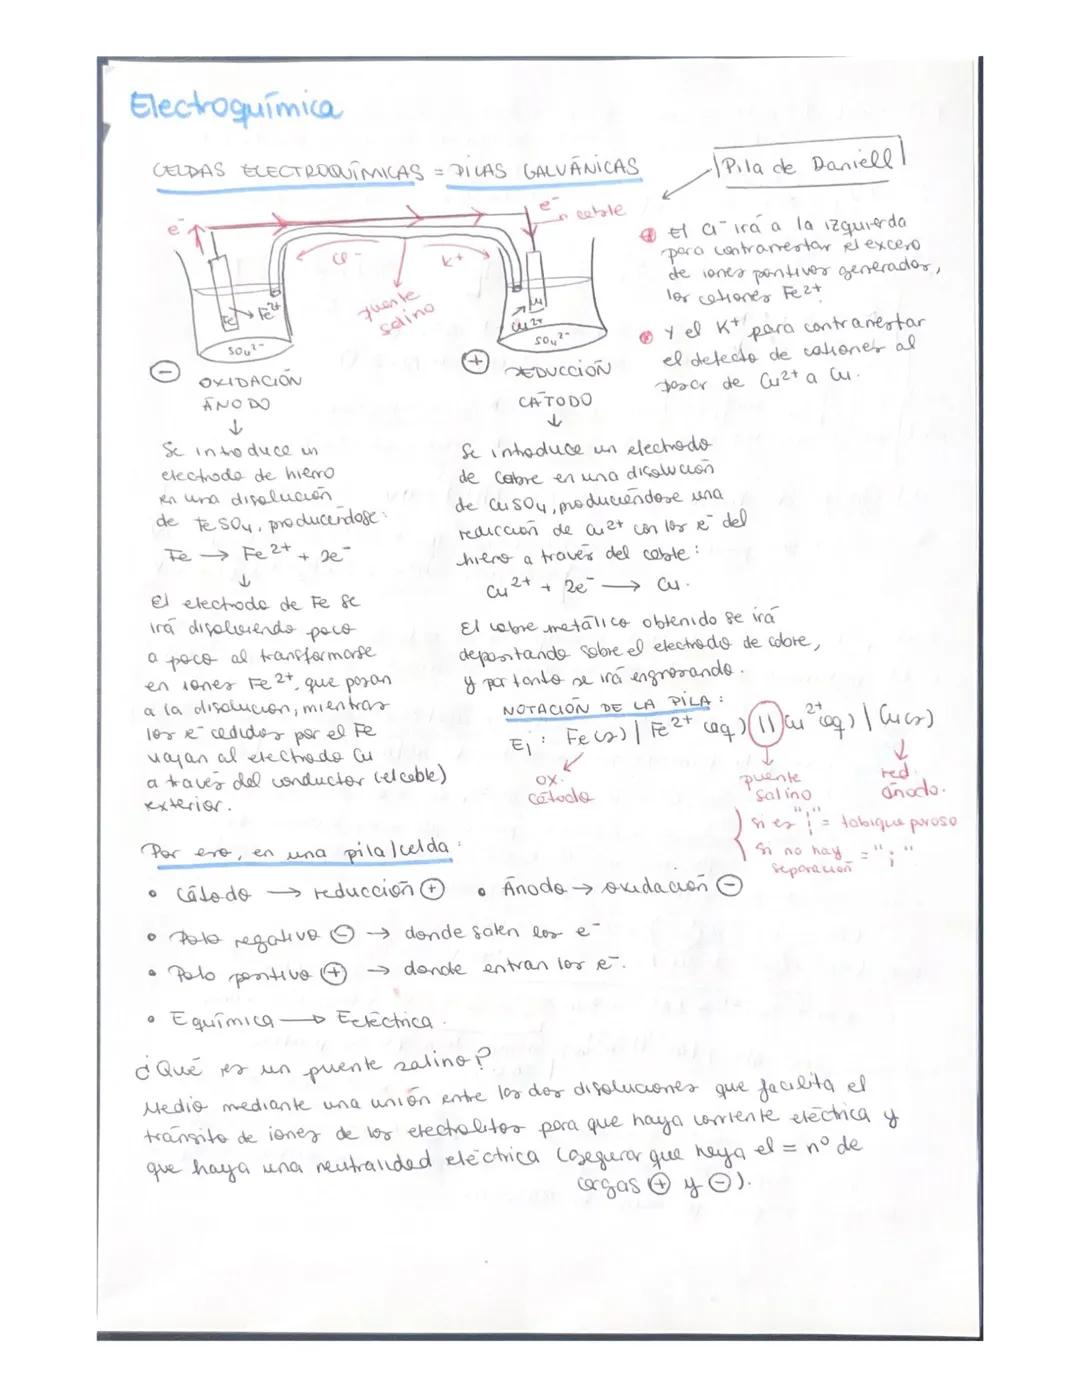 Electroquímica
CELDAS ELECTROQUÍMICAS = PILAS GALVÁNICAS
Pila de Daniell
e⁻
e⁻
n cable
Cl⁻
K⁺
puente
salino
Fe
Fe²⁺
SO₄²⁻
Cu
Cu²⁺
SO₄²⁻
El Cl⁻ irá a la izquierda
para contrarrestar el exceso
de iones positivos generados,
los cationes Fe²⁺
Y el K⁺ para contrarrestar
el defecto de cationes al
pasar de Cu²⁺ a Cu.
⊖ OXIDACIÓN
ÁNODO
↓
Se introduce un
electrodo de hierro
en una disolución
de FeSO₄, produciéndose:
Fe → Fe²⁺ + 2e⁻
↓
El electrodo de Fe se
irá disolviendo poco
a poco al transformarse
en iones Fe²⁺, que pasan
a la disolución, mientras
los e⁻ cedidos por el Fe
viajan al electrodo Cu
a través del conductor (el cable)
exterior.
⊕ REDUCCIÓN
CÁTODO
↓
Se introduce un electrodo
de cobre en una disolución
de CuSO₄, produciéndose una
reducción de Cu²⁺ con los e⁻ del
hierro a través del cable:
Cu²⁺ + 2e⁻ → Cu.
El cobre metálico obtenido se irá
depositando sobre el electrodo de cobre,
y por tanto se irá engrosando.
NOTACIÓN DE LA PILA:
Ej: Fe(s) | Fe²⁺ (aq) || Cu²⁺(aq) | Cu(s)
ox.
cátodo
puente
salino
red.
ánodo.
si es "¦" = tabique poroso
si no hay
separación = ";"
Por eso, en una pila/celda:
• Cátodo → reducción ⊕ • Ánodo → oxidación ⊖
• Polo negativo ⊖ → donde salen los e⁻
• Polo positivo ⊕ → donde entran los e⁻.
• Equímica → Eeléctrica.
¿Qué es un puente salino?
Medio mediante una unión entre las dos disoluciones que facilita el
tránsito de iones de los electrolitos para que haya corriente eléctrica y
que haya una neutralidad eléctrica (asegurar que haya el = nº de
cargas ⊕ y ⊖).